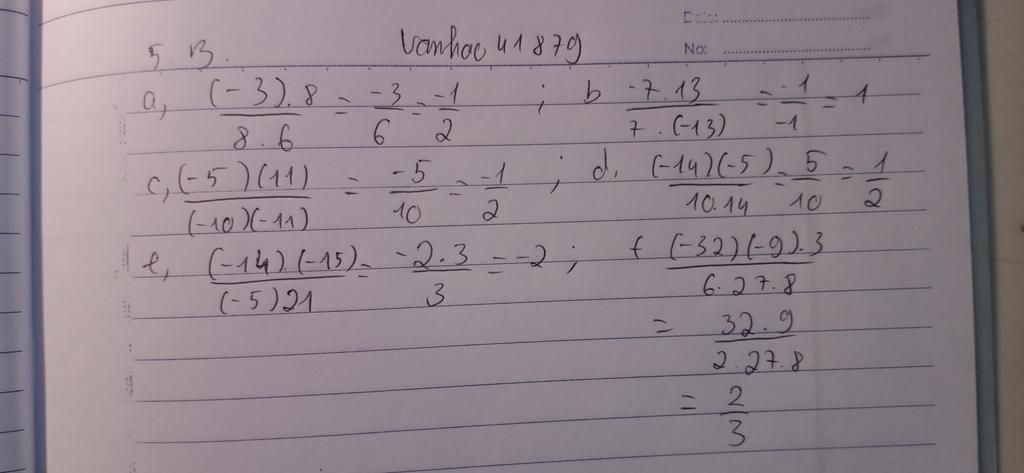 Date: ........................
No: ........................
5. B. vanhoc 41879
a, (-3).8 / 8.6 = -3/6 = -1/2 ; b -7.13 / 7.(-13) = -1/-1 = 1
c, (-5)(11) / (-10)(-11) = -5/10 = -1/2 ; d. (-14)(-5) / 10.14 = 5/10 = 1/2
e, (-14).(-15) / (-5)21 = -2.3/3 = -2 ; f (-32)(-9).3 / 6.27.8
= 32.9 / 2.27.8
= 2/3